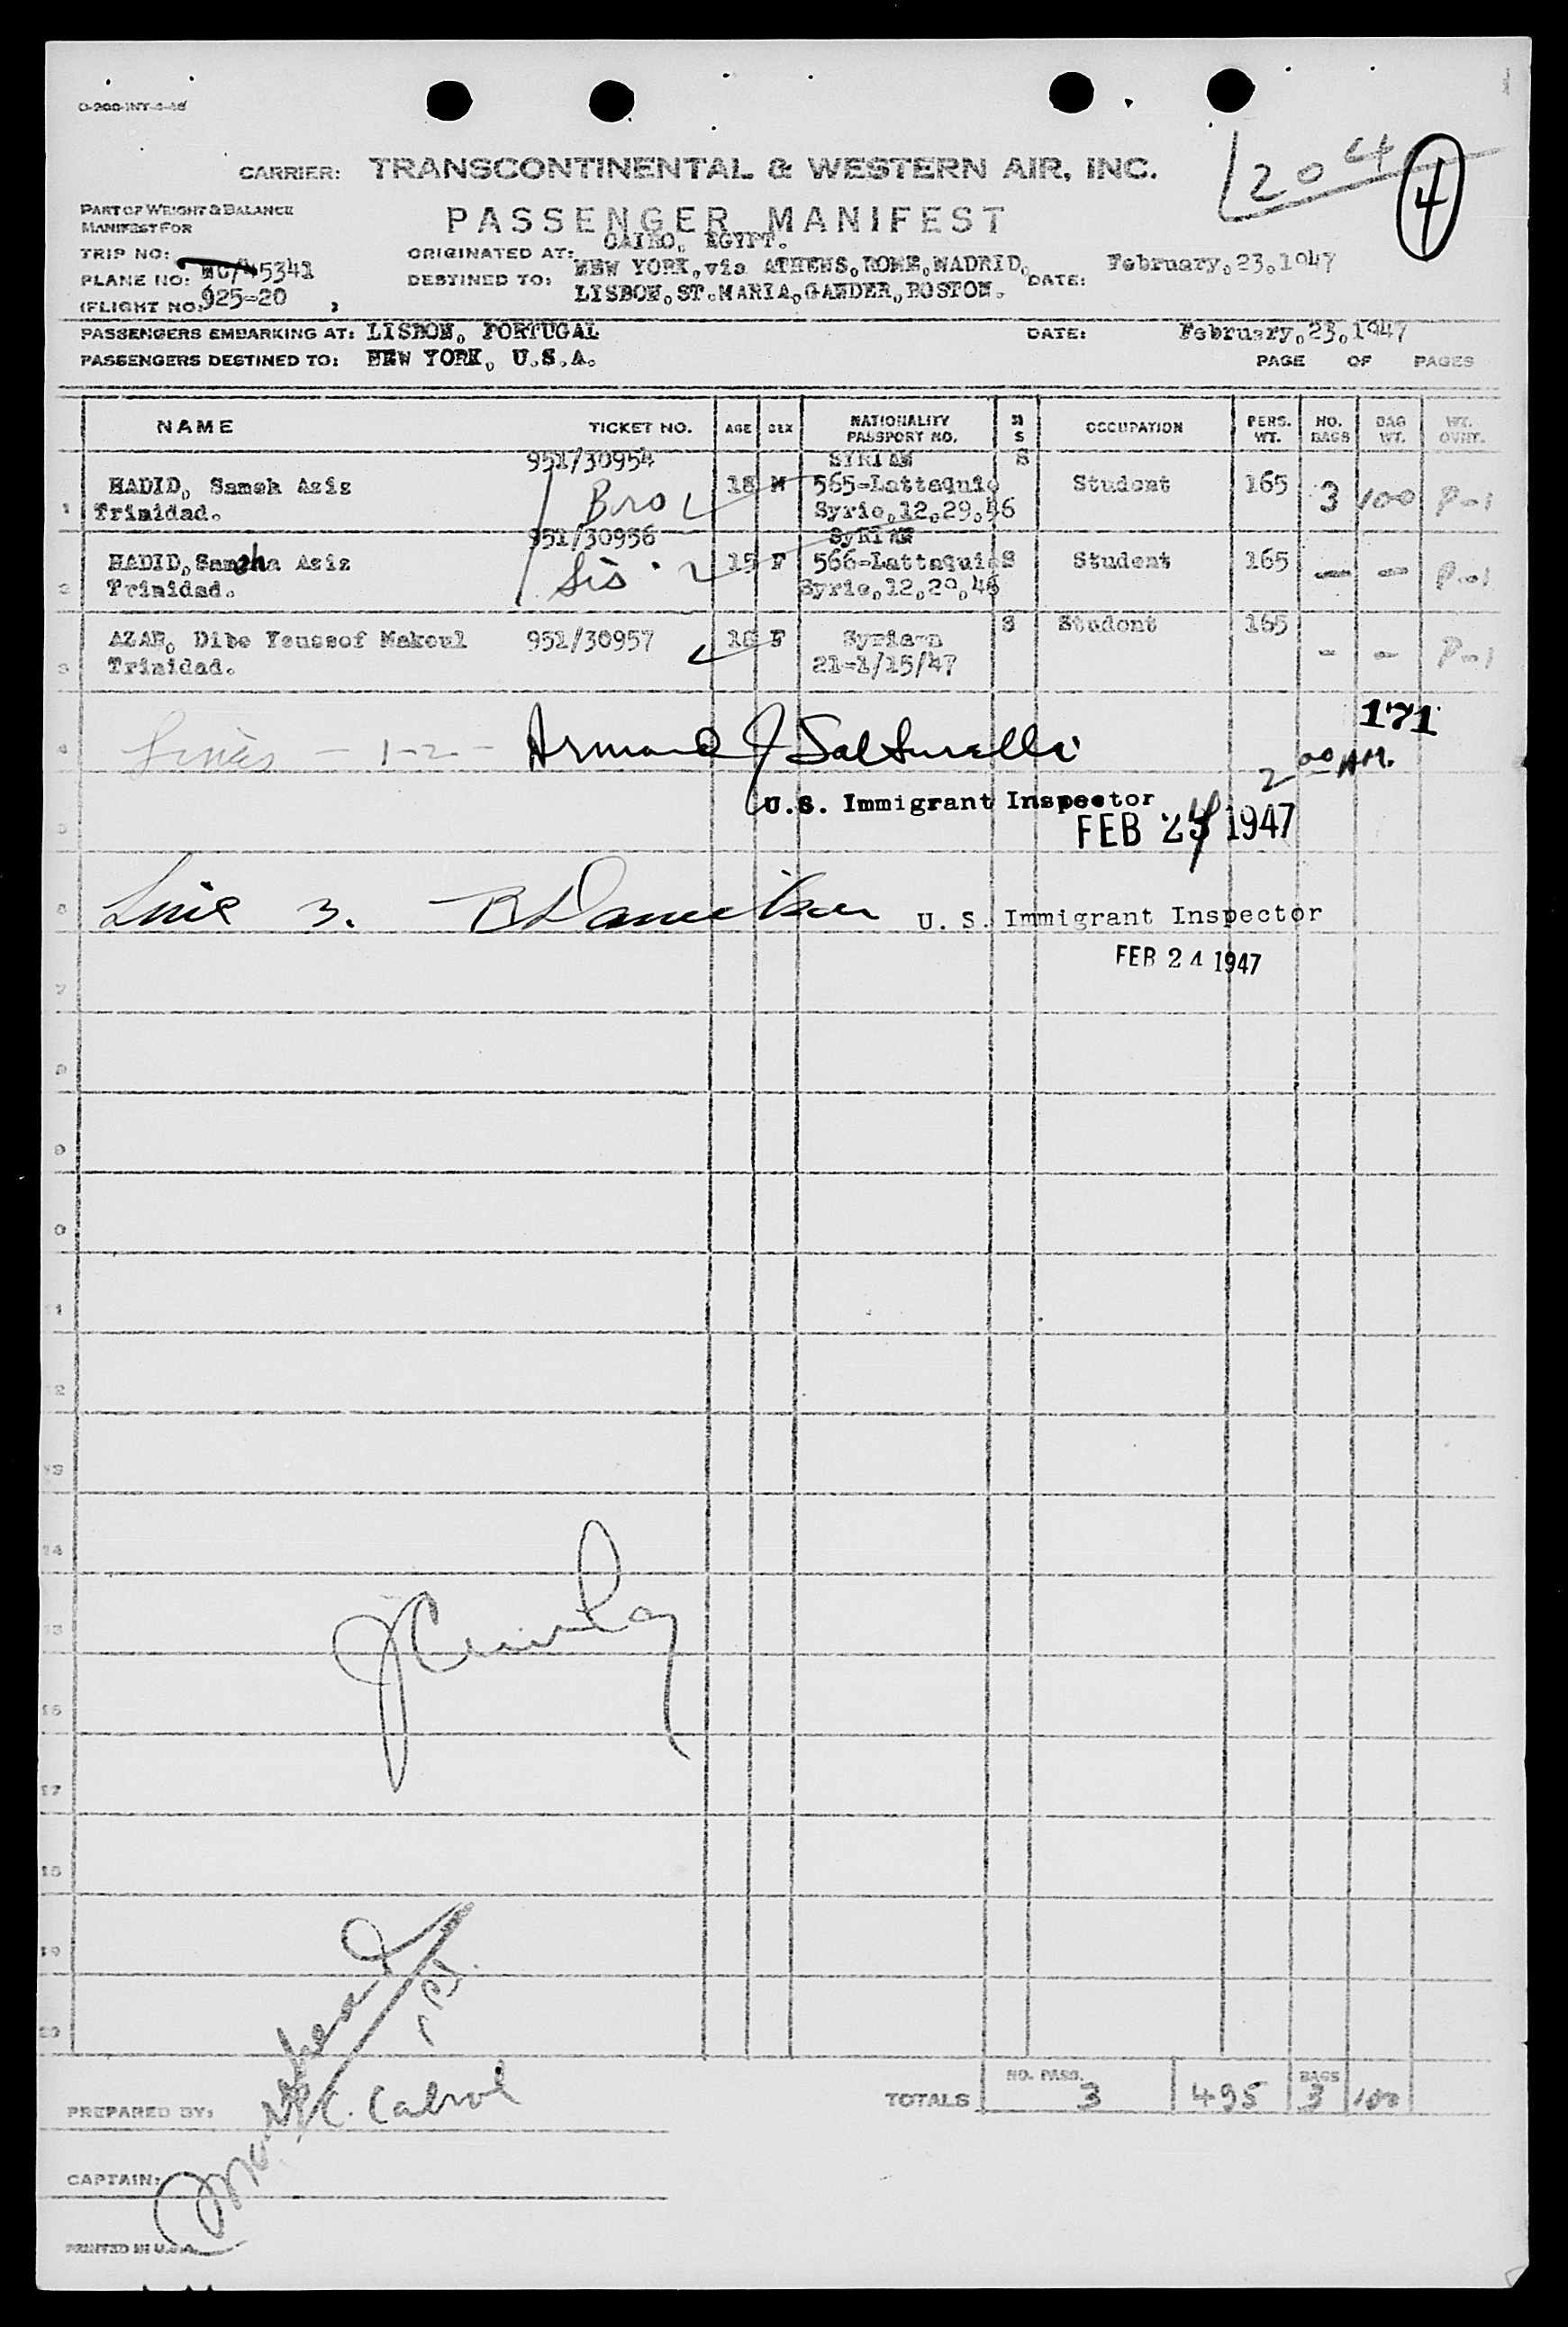 O-200-INT-4-46
CARRIER: TRANSCONTINENTAL & WESTERN AIR, INC.
204
4
PART OF WEIGHT & BALANCE
MANIFEST FOR
PASSENGER MANIFEST
TRIP NO:
ORIGINATED AT: CAIRO, EGYPT.
PLANE NO: 5341
DESTINED TO: NEW YORK, via ATHENS, ROME, MADRID, DATE: February, 23, 1947
(FLIGHT NO: 925-20 )
LISBON, ST. MARIA, GANDER, BOSTON.
PASSENGERS EMBARKING AT: LISBON, PORTUGAL DATE: February, 23, 1947
PASSENGERS DESTINED TO: NEW YORK, U.S.A. PAGE OF PAGES
NAME TICKET NO. AGE SEX NATIONALITY PASSPORT NO. M S OCCUPATION PERS. WT. NO. BAGS BAG WT. WT. OVHT.
951/30954 SYRIAN S
1 HADID, Sameh Aziz Bro 18 M 565-Lattaquie Student 165 3 100 P-1
Trinidad. Syrie, 12, 29, 46
951/30956 SYRIAN
2 HADID, Sameha Aziz Sis 15 F 566-Lattaquie S Student 165 — — P-1
Trinidad. Syrie, 12, 29, 46
3 AZAR, Dibe Youssof Makoul 951/30957 F Syrian S Student 165 - - P-1
Trinidad. 21-1/15/47
171
4 Lines - 1-2 - Armand J Salturelli
2 00 AM.
U.S. Immigrant Inspector
5 FEB 24 1947
6 Line 3. U. S. Immigrant Inspector
FEB 24 1947
7
8
9
0
11
12
13
14
15
16
17
18
19
20
TOTALS NO. PASS. 3 495 BAGS 3 100
PREPARED BY: C. Cabrol
CAPTAIN: Moorhead
PRINTED IN U.S.A.